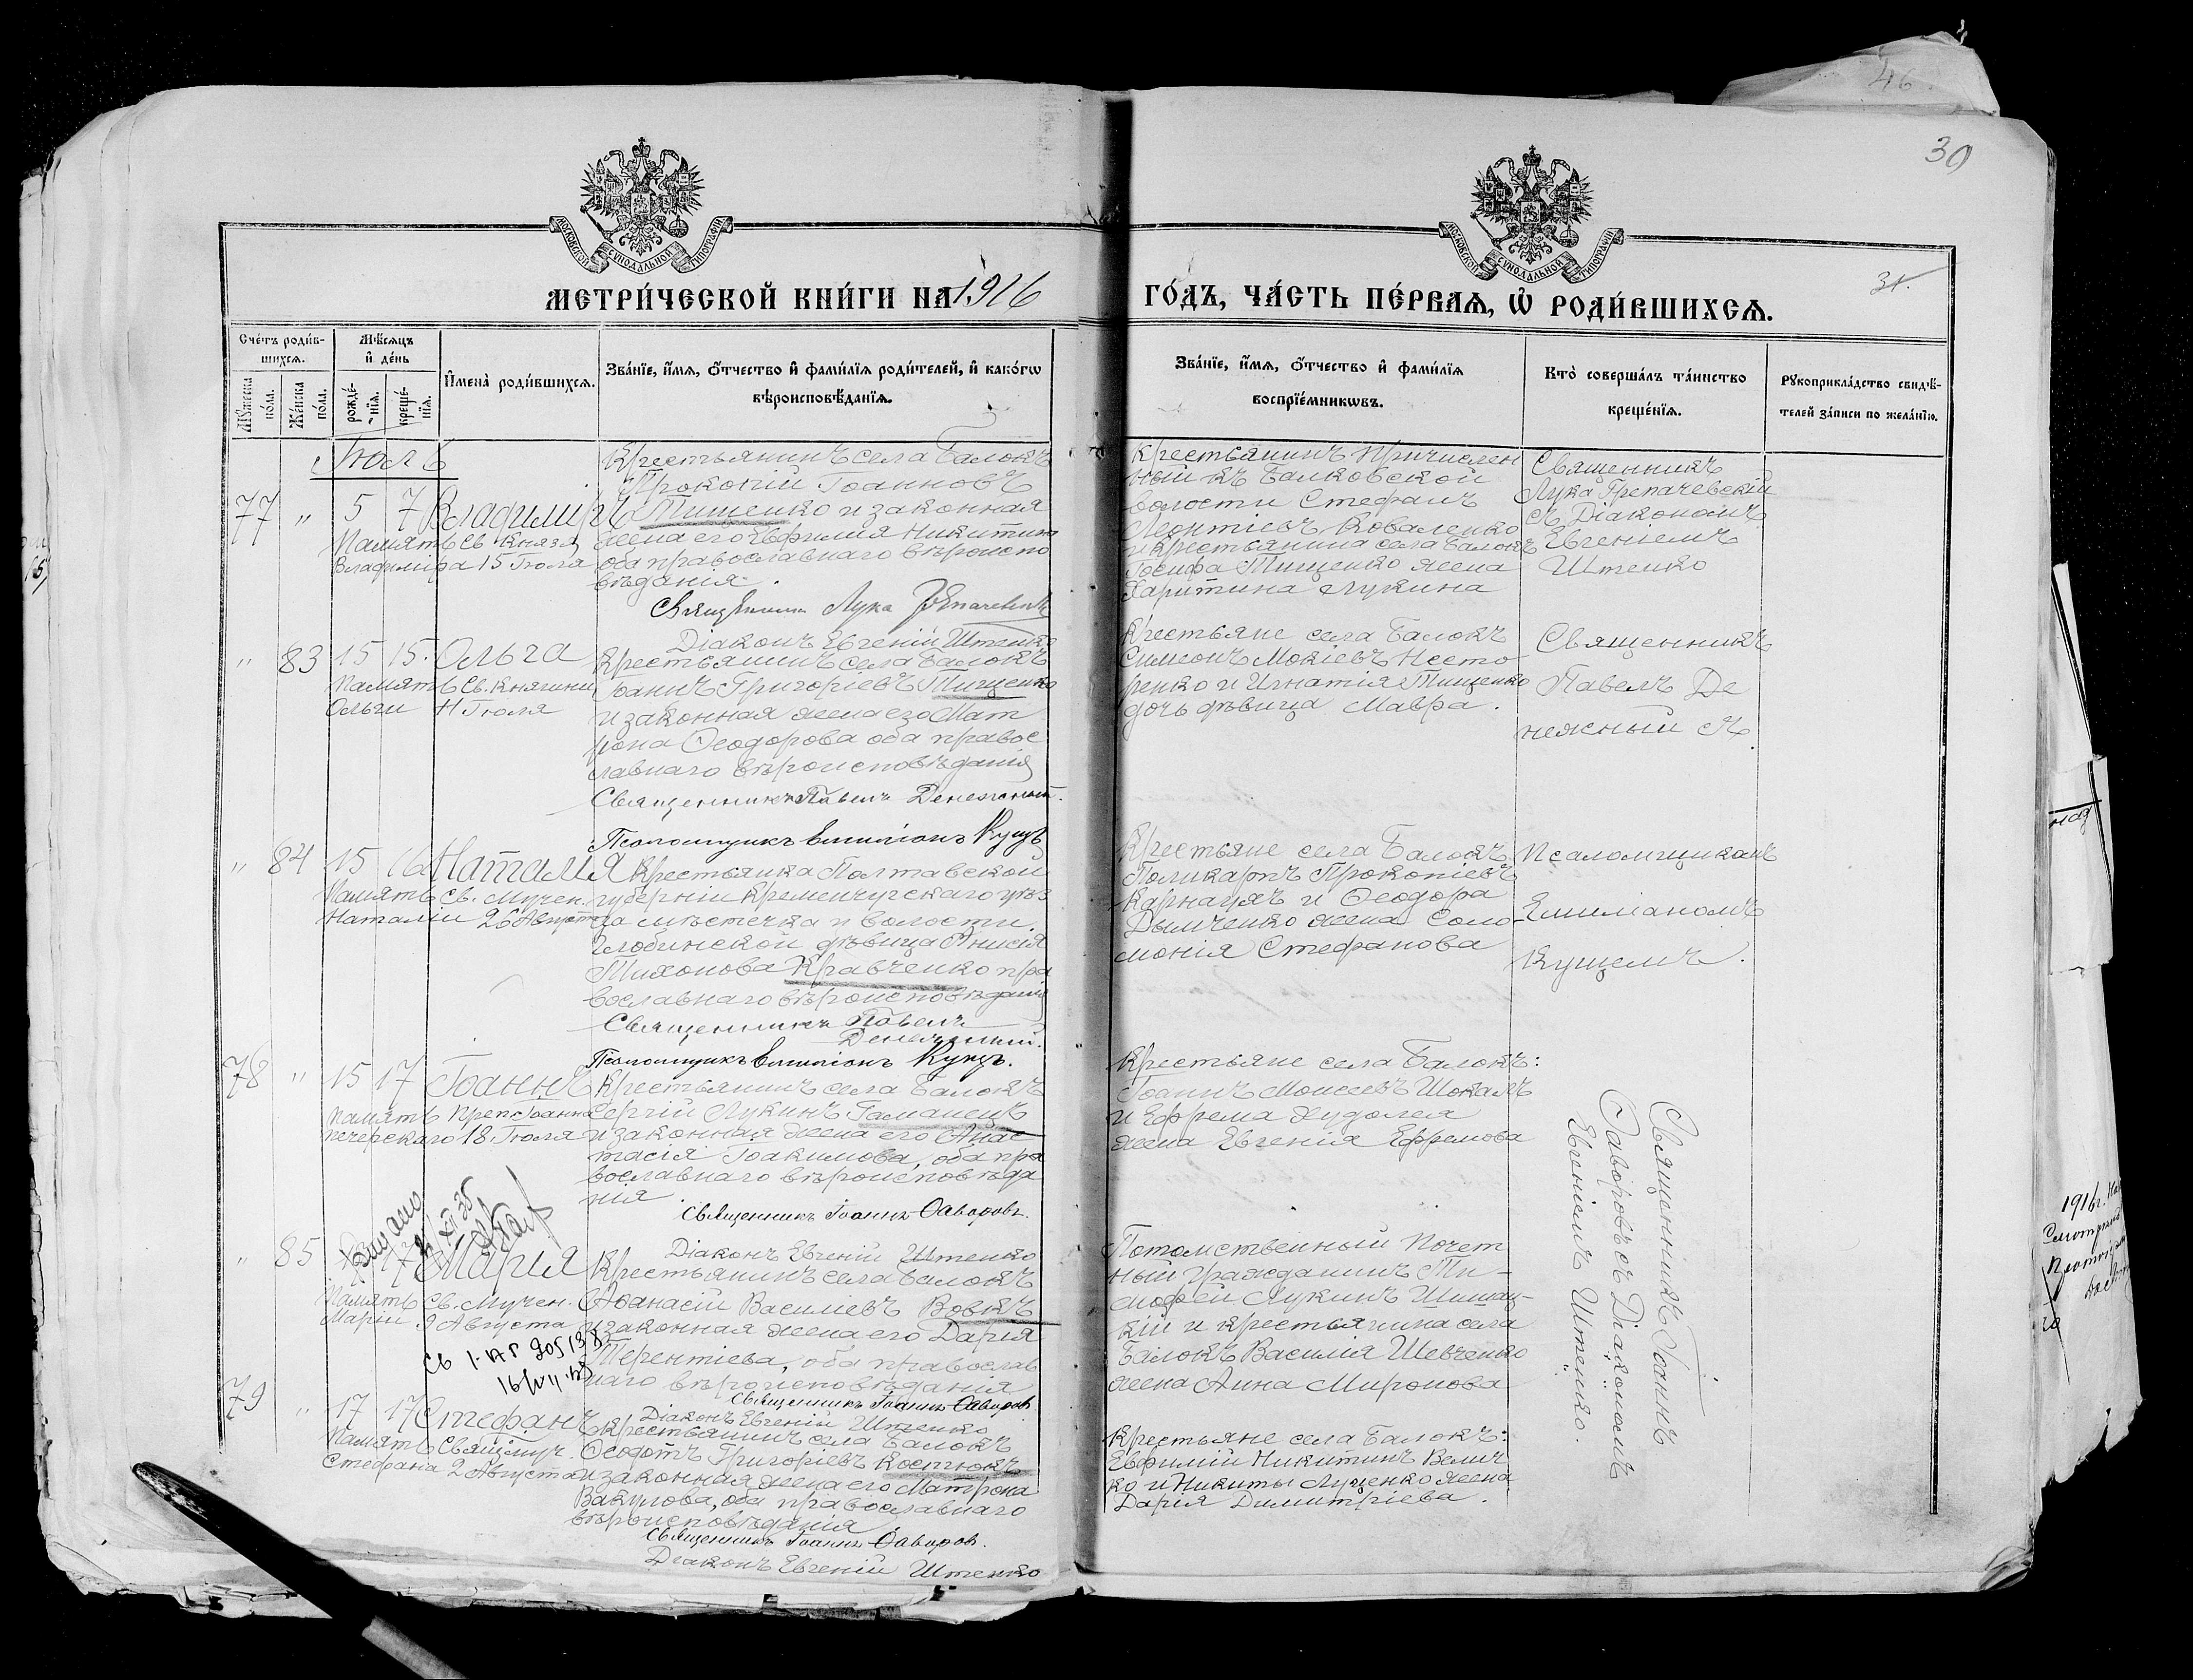 46
30
31.
МОСКОВСКОЙ СѴНОДАЛЬНОЙ ТИПОГРАФІИ
МОСКОВСКОЙ СѴНОДАЛЬНОЙ ТИПОГРАФІИ
МЕТРИ́ЧЕСКОЙ КНИ́ГИ НА 1916 ГО́ДЪ, ЧА́СТЬ ПЕ́РВАѦ, Ѡ҆ РОДИ́ВШИХСѦ.
Сче́тъ роди́в-
шихсѧ.
Мꙋ́жеска по́ла.
Же́нска по́ла.
Мѣ́сѧцъ
и҆ де́нь
рожде́-
нїѧ.
креще́-
нїѧ.
И҆мена̀ роди́вшихсѧ.
Зва́нїе, и҆́мѧ, ѻ҆́тчество и҆ фами́лїѧ роди́телей, и҆ како́гѡ
вѣроисповѣ́данїѧ.
Зва́нїе, и҆́мѧ, ѻ҆́тчество и҆ фами́лїѧ
воспрїе́мникѡвъ.
Кто̀ соверша́лъ та́инство
креще́нїѧ.
Рꙋкоприкла́дство свидѣ́-
телей за́писи по жела́нїю.
Іюль
77 " 5 7 Владиміръ
Память Св. Князя
Владиміра 15 Іюля
Крестьянинъ села Балокъ
Прокопій Іоанновъ
Тищенко и законная
жена его Евфимія Никитина
оба православнаго вѣроиспо
вѣданія.
Священникъ Лука
Діаконъ Евгеній Штепко
Крестьянинъ причислен
ный къ Балковской
волости Стефанъ
Леонтіевъ Коваленко
и крестьянина села Балокъ
Іосифа Тищенко жена
Харитина Лукина
Священникъ
Лука
съ Діакономъ
Евгеніемъ
Штепко
" 83 15 15. Ольга
Память Св. Княгини
Ольги 11 Іюля
Крестьянинъ села Балокъ
Іоаннъ Григоріевъ Тищенко
и законная жена его Мат
рона Ѳеодорова оба правос
лавнаго вѣроисповѣданія
Священникъ Павелъ Денежный.
Псаломщикъ Емиліанъ Кущъ
Крестьяне села Балокъ
Симеонъ Мокіевъ Несто
ренко и Игнатія Тищенко
дочь дѣвица Мавра.
Священникъ
Павелъ Де
нежный
" 84 15 16 Наталія
Память Св. Мучен.
Наталіи 26 Августа
Крестьянка Полтавской
губерніи Кременчугскаго уѣз
да мѣстечка и волости
Глобинской дѣвица Анисія
Тихонова Кравченко пра
вославнаго вѣроисповѣданія
Священникъ Павелъ
Денежный.
Псаломщикъ Емиліанъ Кущъ.
Крестьяне села Балокъ
Поликарпъ Прокопіевъ
Карнаухъ и Ѳеодора
Дымченко жена Соло-
монія Стефанова
Псаломщикомъ
Емиліаномъ
Кущемъ.
78 " 15 17 Іоаннъ
Память Преп. Іоанна
Печерскаго 18 Іюля
Крестьянинъ села Балокъ
Сергій Лукинъ Гаманецъ
и законная жена его Анас
тасія Іоакимова, оба пра
вославнаго вѣроисповѣда
нія.
Священникъ Іоаннъ Ѳаворовъ.
Діаконъ Евгеній Штепко
Крестьяне села Балокъ:
Іоаннъ Моисеевъ Шокалъ
и Ефрема Худолея
жена Евгенія Ефремова
Священникъ Іоаннъ
Ѳаворовъ съ Діакономъ
Евгеніемъ Штепко.
" 85 17 Марія
Память Св. Мучен.
Маріи 9 Августа
Крестьянинъ села Балокъ
Аѳанасій Василіевъ Вовкъ
и законная жена его Дарія
Терентіева, оба православ
наго вѣроисповѣданія
Священникъ Іоаннъ Ѳаворовъ
Діаконъ Евгеній Штепко
Потомственный Почет
ный гражданинъ Ти-
моѳей Лукинъ Шишац-
кій и крестьянина села
Балокъ Василія Шевченко
жена Анна Миронова
79 " 17 17 Стефанъ
Память Свящ. муч.
Стефана 2 Августа
Крестьянинъ села Балокъ
Ѳеодотъ Григоріевъ Костюкъ
и законная жена его Матрона
Вакулова, оба православнаго
вѣроисповѣданія
Священникъ Іоаннъ Ѳаворовъ.
Діаконъ Евгеній Штепко
Крестьяне села Балокъ:
Евфимій Никитинъ Велич
ко и Никиты Луценко жена
Дарія Димитріева.
1916 г.